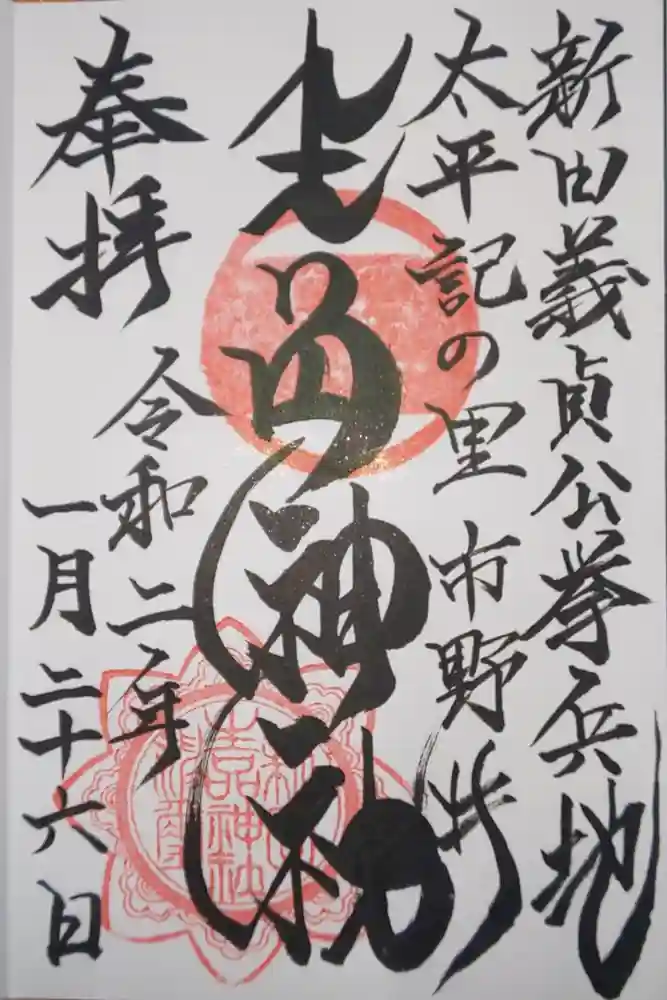 新田義貞公挙兵地
太平記の里 市野井
生品神社
奉拝
令和二年
一月二十六日